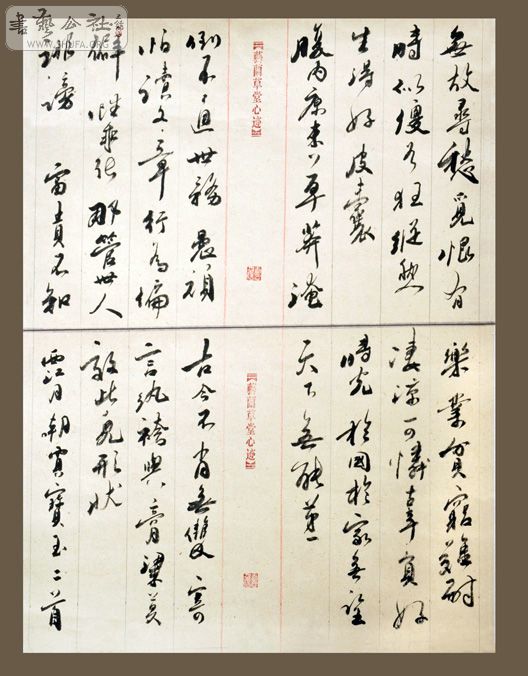 無故尋愁覓恨有
時似傻如狂縱然
生得好皮囊
腹內原來草莽潦
【藝蘭草堂心迹】
倒不通世務愚頑
怕讀文章行為偏
僻性乖張那管世人
誹謗 富貴不知
樂業貧窮難耐
凄涼可憐辜負好
時光於國於家無望
天下無能第一
【藝蘭草堂心迹】
古今不肖無雙 寄
言紈袴與膏粱莫
效此兒形狀
西江月 嘲賈寶玉二首
書藝公社
WWW.SHUFA.ORG